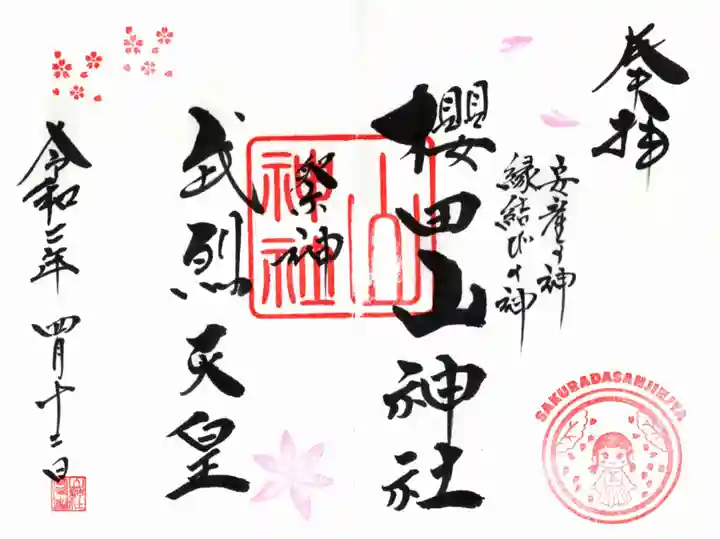 奉拝
安産の神
縁結びの神
櫻田山神社
祭神
武烈天皇
令和二年 四月十二日
山神社
SAKURADASANJINJYA